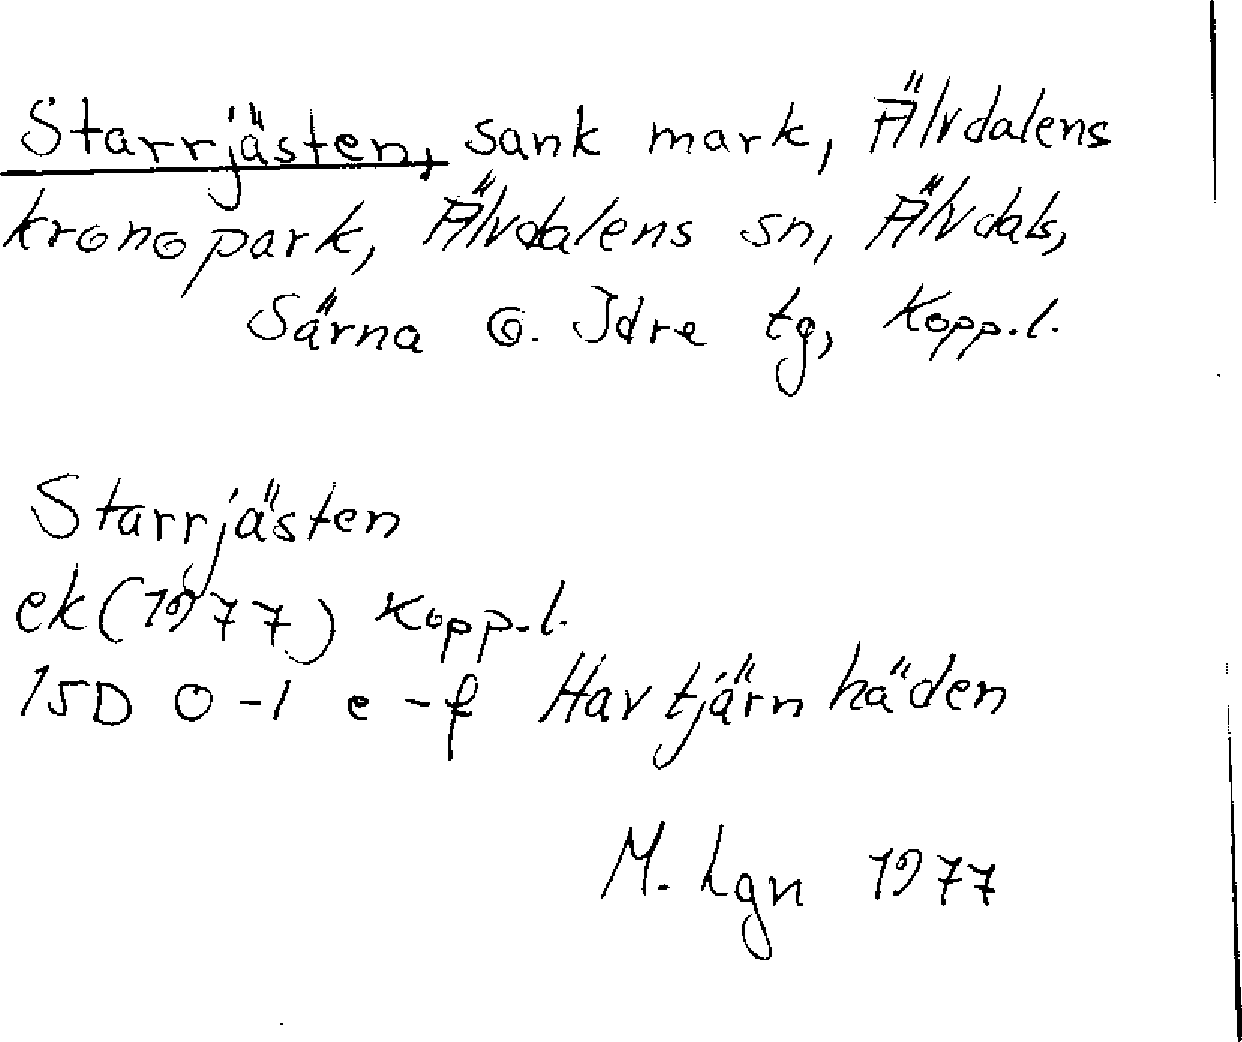 Starrjästen, sank mark, Älvdalens
kronopark, Älvdalens sn, Älvdals,
Särna o. Idre tg, Kopp.l.
Starrjästen
ek(1977) Kopp.l.
15D 0-1 e-f Havtjärnhäden
M. Lgn 1977